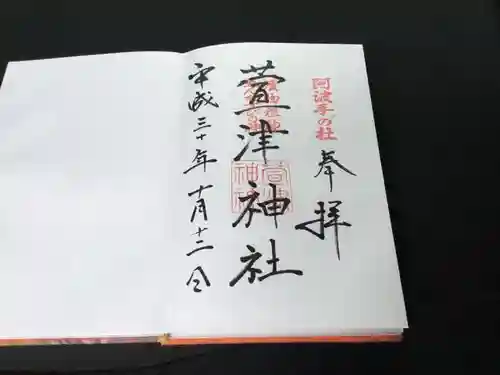 阿波手の杜
奉拝
萱津神社
平成三十年十月十二日